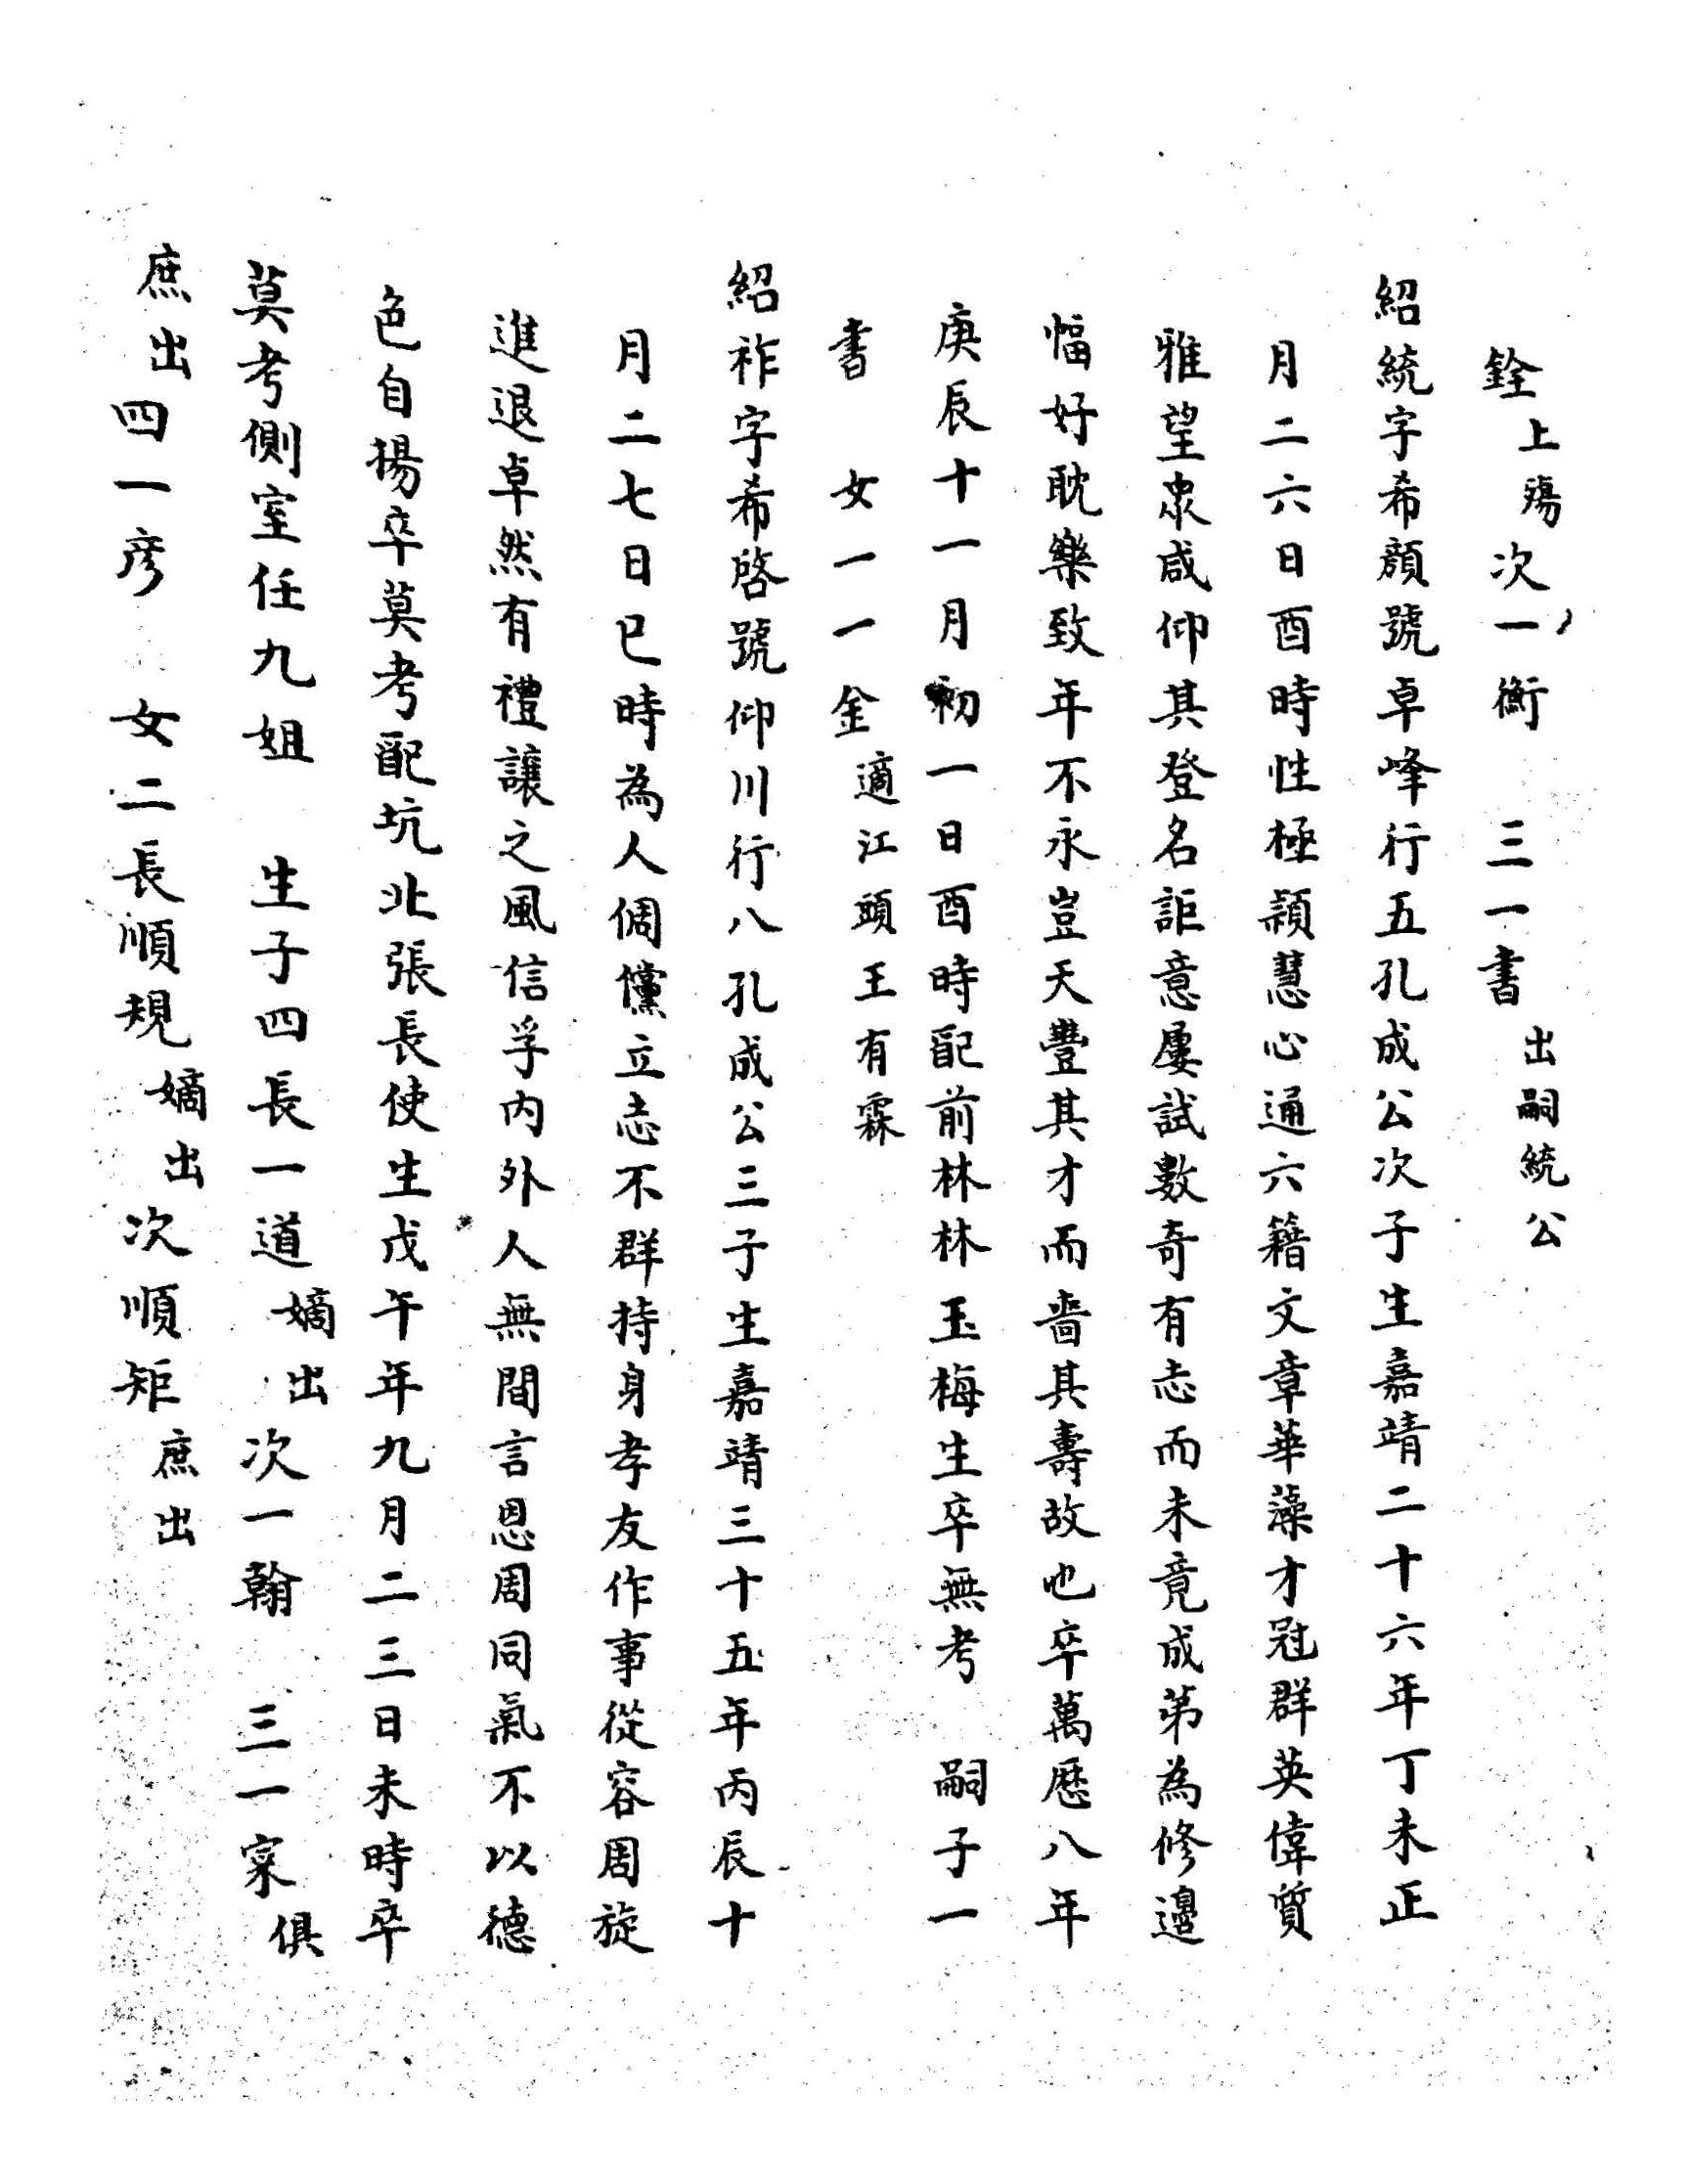 銓上殤次一衡　三一書出嗣統公
紹統字希顏號卓峰行五孔成公次子生嘉靖二十六年丁未正
月二六日酉時性極穎慧心通六籍文章華藻才冠群英偉質
雅望衆咸仰其登名詎意屢試數奇有志而未竟成第為修邊
幅好耽樂致年不永豈天豐其才而嗇其壽故也卒萬厯八年
庚辰十一月初一日酉時配前林林玉梅生卒無考　嗣子一
書　女一一金適江頭王有霖
紹祚字希啓號仰川行八孔成公三子生嘉靖三十五年丙辰十
月二七日巳時為人倜儻立志不群持身孝友作事從容周旋
進退卓然有禮讓之風信孚內外人無間言恩周同氣不以德
色自揚卒莫考配坑北張長使生戊午年九月二三日未時卒
莫考側室任九姐　生子四長一道嫡出次一翰　三一寀俱
庶出四一彥　女二長順規嫡出次順矩庶出